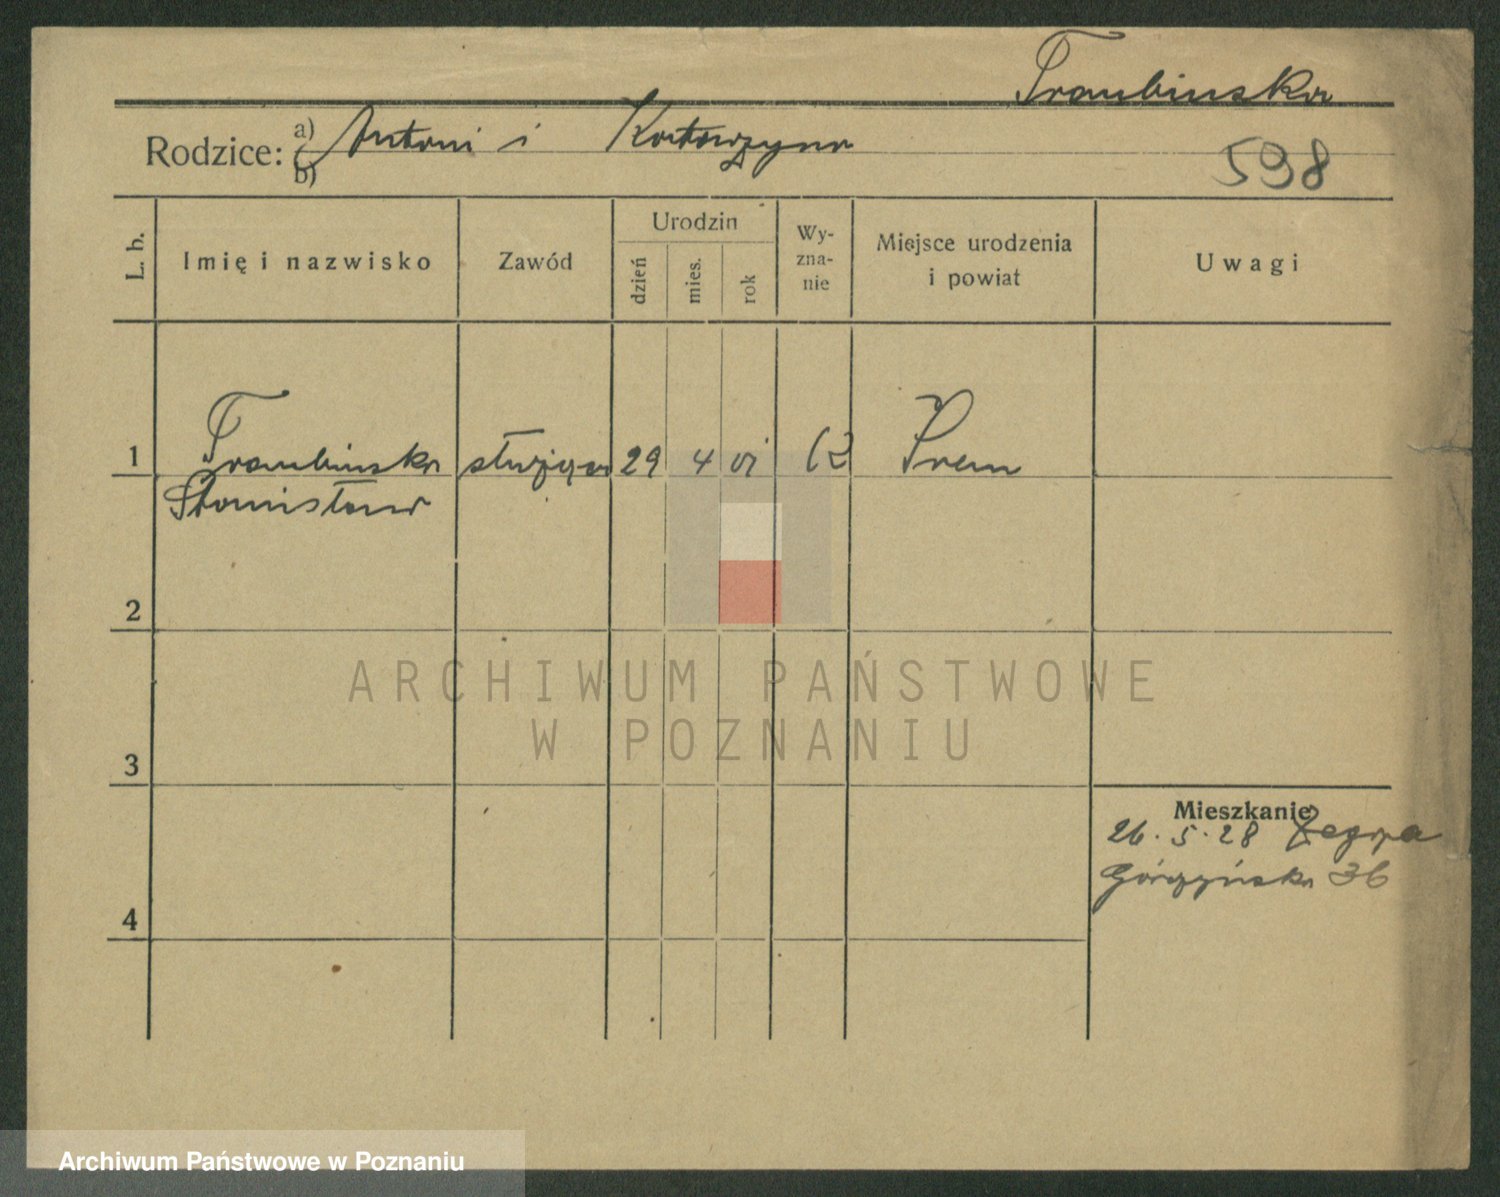 Traubinska
Rodzice: a) Antoni i Katarzyna
b)
598
L. b.
Imię i nazwisko
Zawód
Urodzin
dzień
mies.
rok
Wy-
zna-
nie
Miejsce urodzenia
i powiat
Uwagi
1 Traubinska służąca 29 4 01 R
Stanisława
2
3
4
Mieszkanie
26.5.28
Górczyńska 36
ARCHIWUM PAŃSTWOWE
W POZNANIU
Archiwum Państwowe w Poznaniu